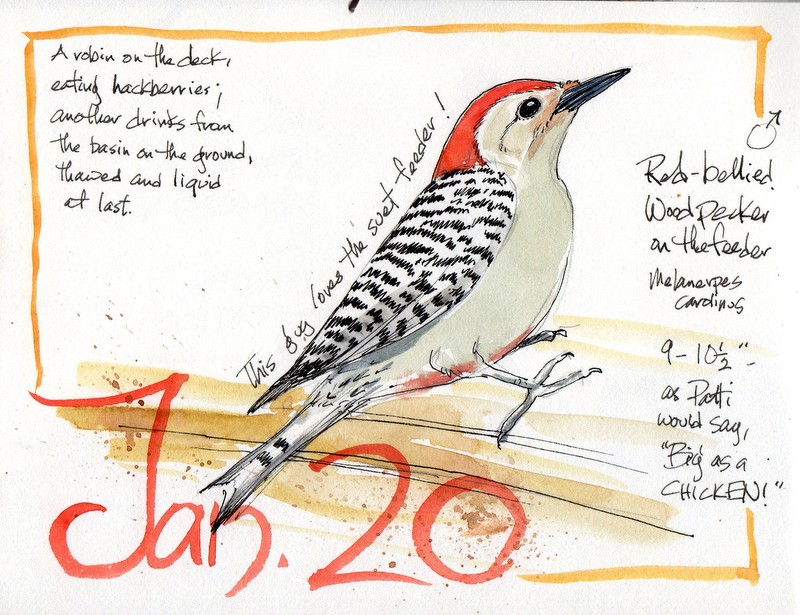 A robin on the deck,
eating hackberries;
another drinks from
the basin on the ground,
thawed and liquid
at last.
This guy loves the suet feeder!
♂
Red-bellied
Woodpecker
on the feeder
Melanerpes
carolinus
9-10½"-
as Patti
would say,
"Big as a
CHICKEN!"
Jan. 20